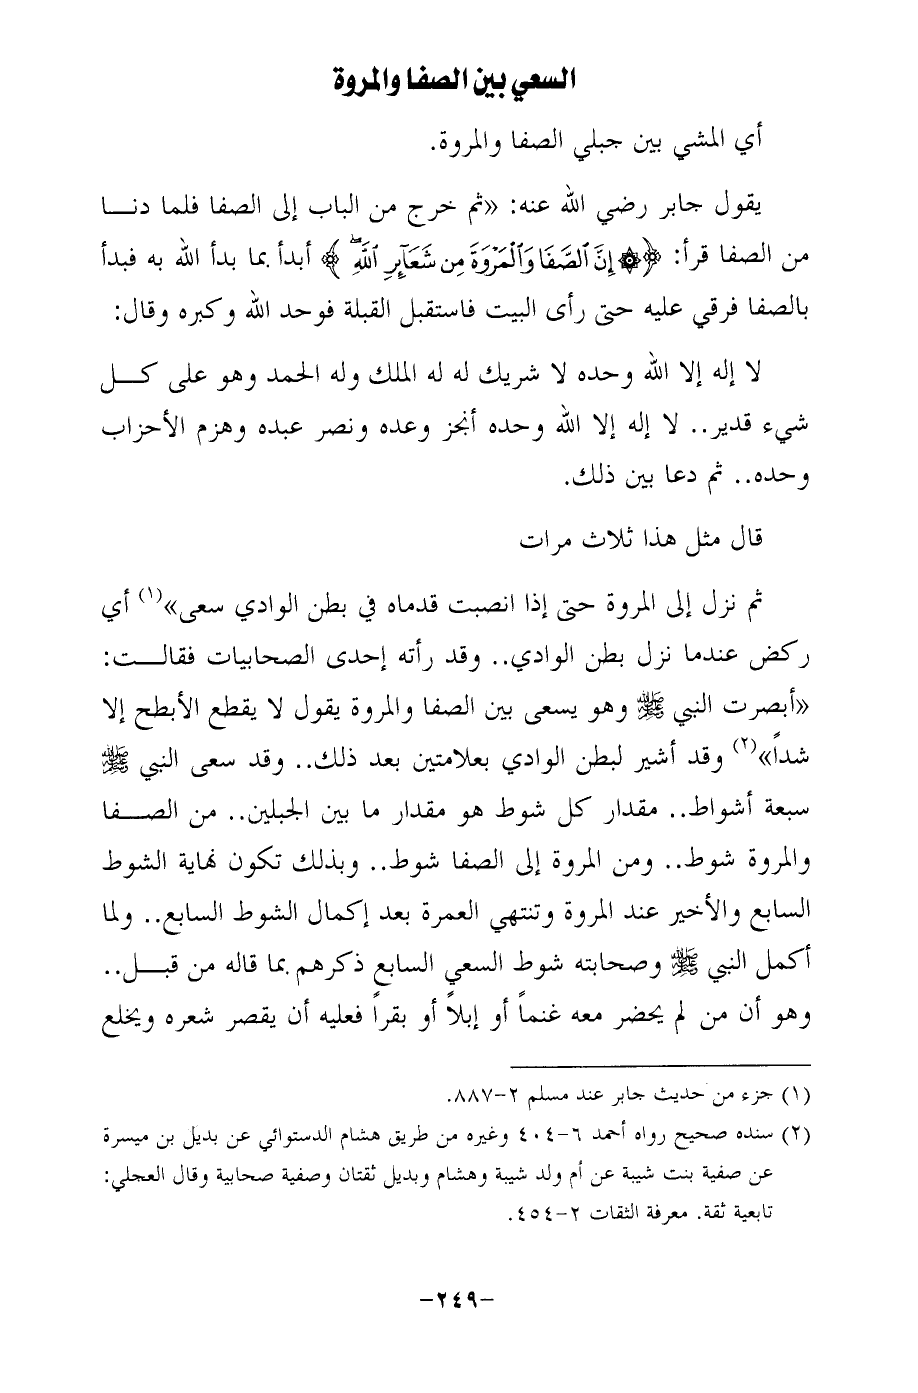 السعي بين الصفا والمروة
أي المشي بين جبلي الصفا والمروة.
يقول جابر رضي الله عنه: «ثم خرج من الباب إلى الصفا فلما دنـــا
من الصفا قرأ: ﴿۞ إِنَّ ٱلصَّفَا وَٱلْمَرْوَةَ مِن شَعَآئِرِ ٱللَّهِۖ ﴾ أبدأ بما بدأ الله به فبدأ
بالصفا فرقي عليه حتى رأى البيت فاستقبل القبلة فوحد الله وكبره وقال:
لا إله إلا الله وحده لا شريك له له الملك وله الحمد وهو على كـــل
شيء قدير.. لا إله إلا الله وحده أنجز وعده ونصر عبده وهزم الأحزاب
وحده.. ثم دعا بين ذلك.
قال مثل هذا ثلاث مرات
ثم نزل إلى المروة حتى إذا انصبت قدماه في بطن الوادي سعى»(١) أي
ركض عندما نزل بطن الوادي.. وقد رأته إحدى الصحابيات فقالـــت:
«أبصرت النبي ﷺ وهو يسعى بين الصفا والمروة يقول لا يقطع الأبطح إلا
شداً»(٢) وقد أشير لبطن الوادي بعلامتين بعد ذلك.. وقد سعى النبي ﷺ
سبعة أشواط.. مقدار كل شوط هو مقدار ما بين الجبلين.. من الصـــفا
والمروة شوط.. ومن المروة إلى الصفا شوط.. وبذلك تكون نهاية الشوط
السابع والأخير عند المروة وتنتهي العمرة بعد إكمال الشوط السابع.. ولما
أكمل النبي ﷺ وصحابته شوط السعي السابع ذكرهم بما قاله من قبـــل..
وهو أن من لم يحضر معه غنماً أو إبلاً أو بقراً فعليه أن يقصر شعره ويخلع
(١) جزء من حديث جابر عند مسلم ٢-٨٨٧.
(٢) سنده صحيح رواه أحمد ٦-٤٠٤ وغيره من طريق هشام الدستوائي عن بديل بن ميسرة
عن صفية بنت شيبة عن أم ولد شيبة وهشام وبديل ثقتان وصفية صحابية وقال العجلي:
تابعية ثقة. معرفة الثقات ٢-٤٥٤.
-٢٤٩-